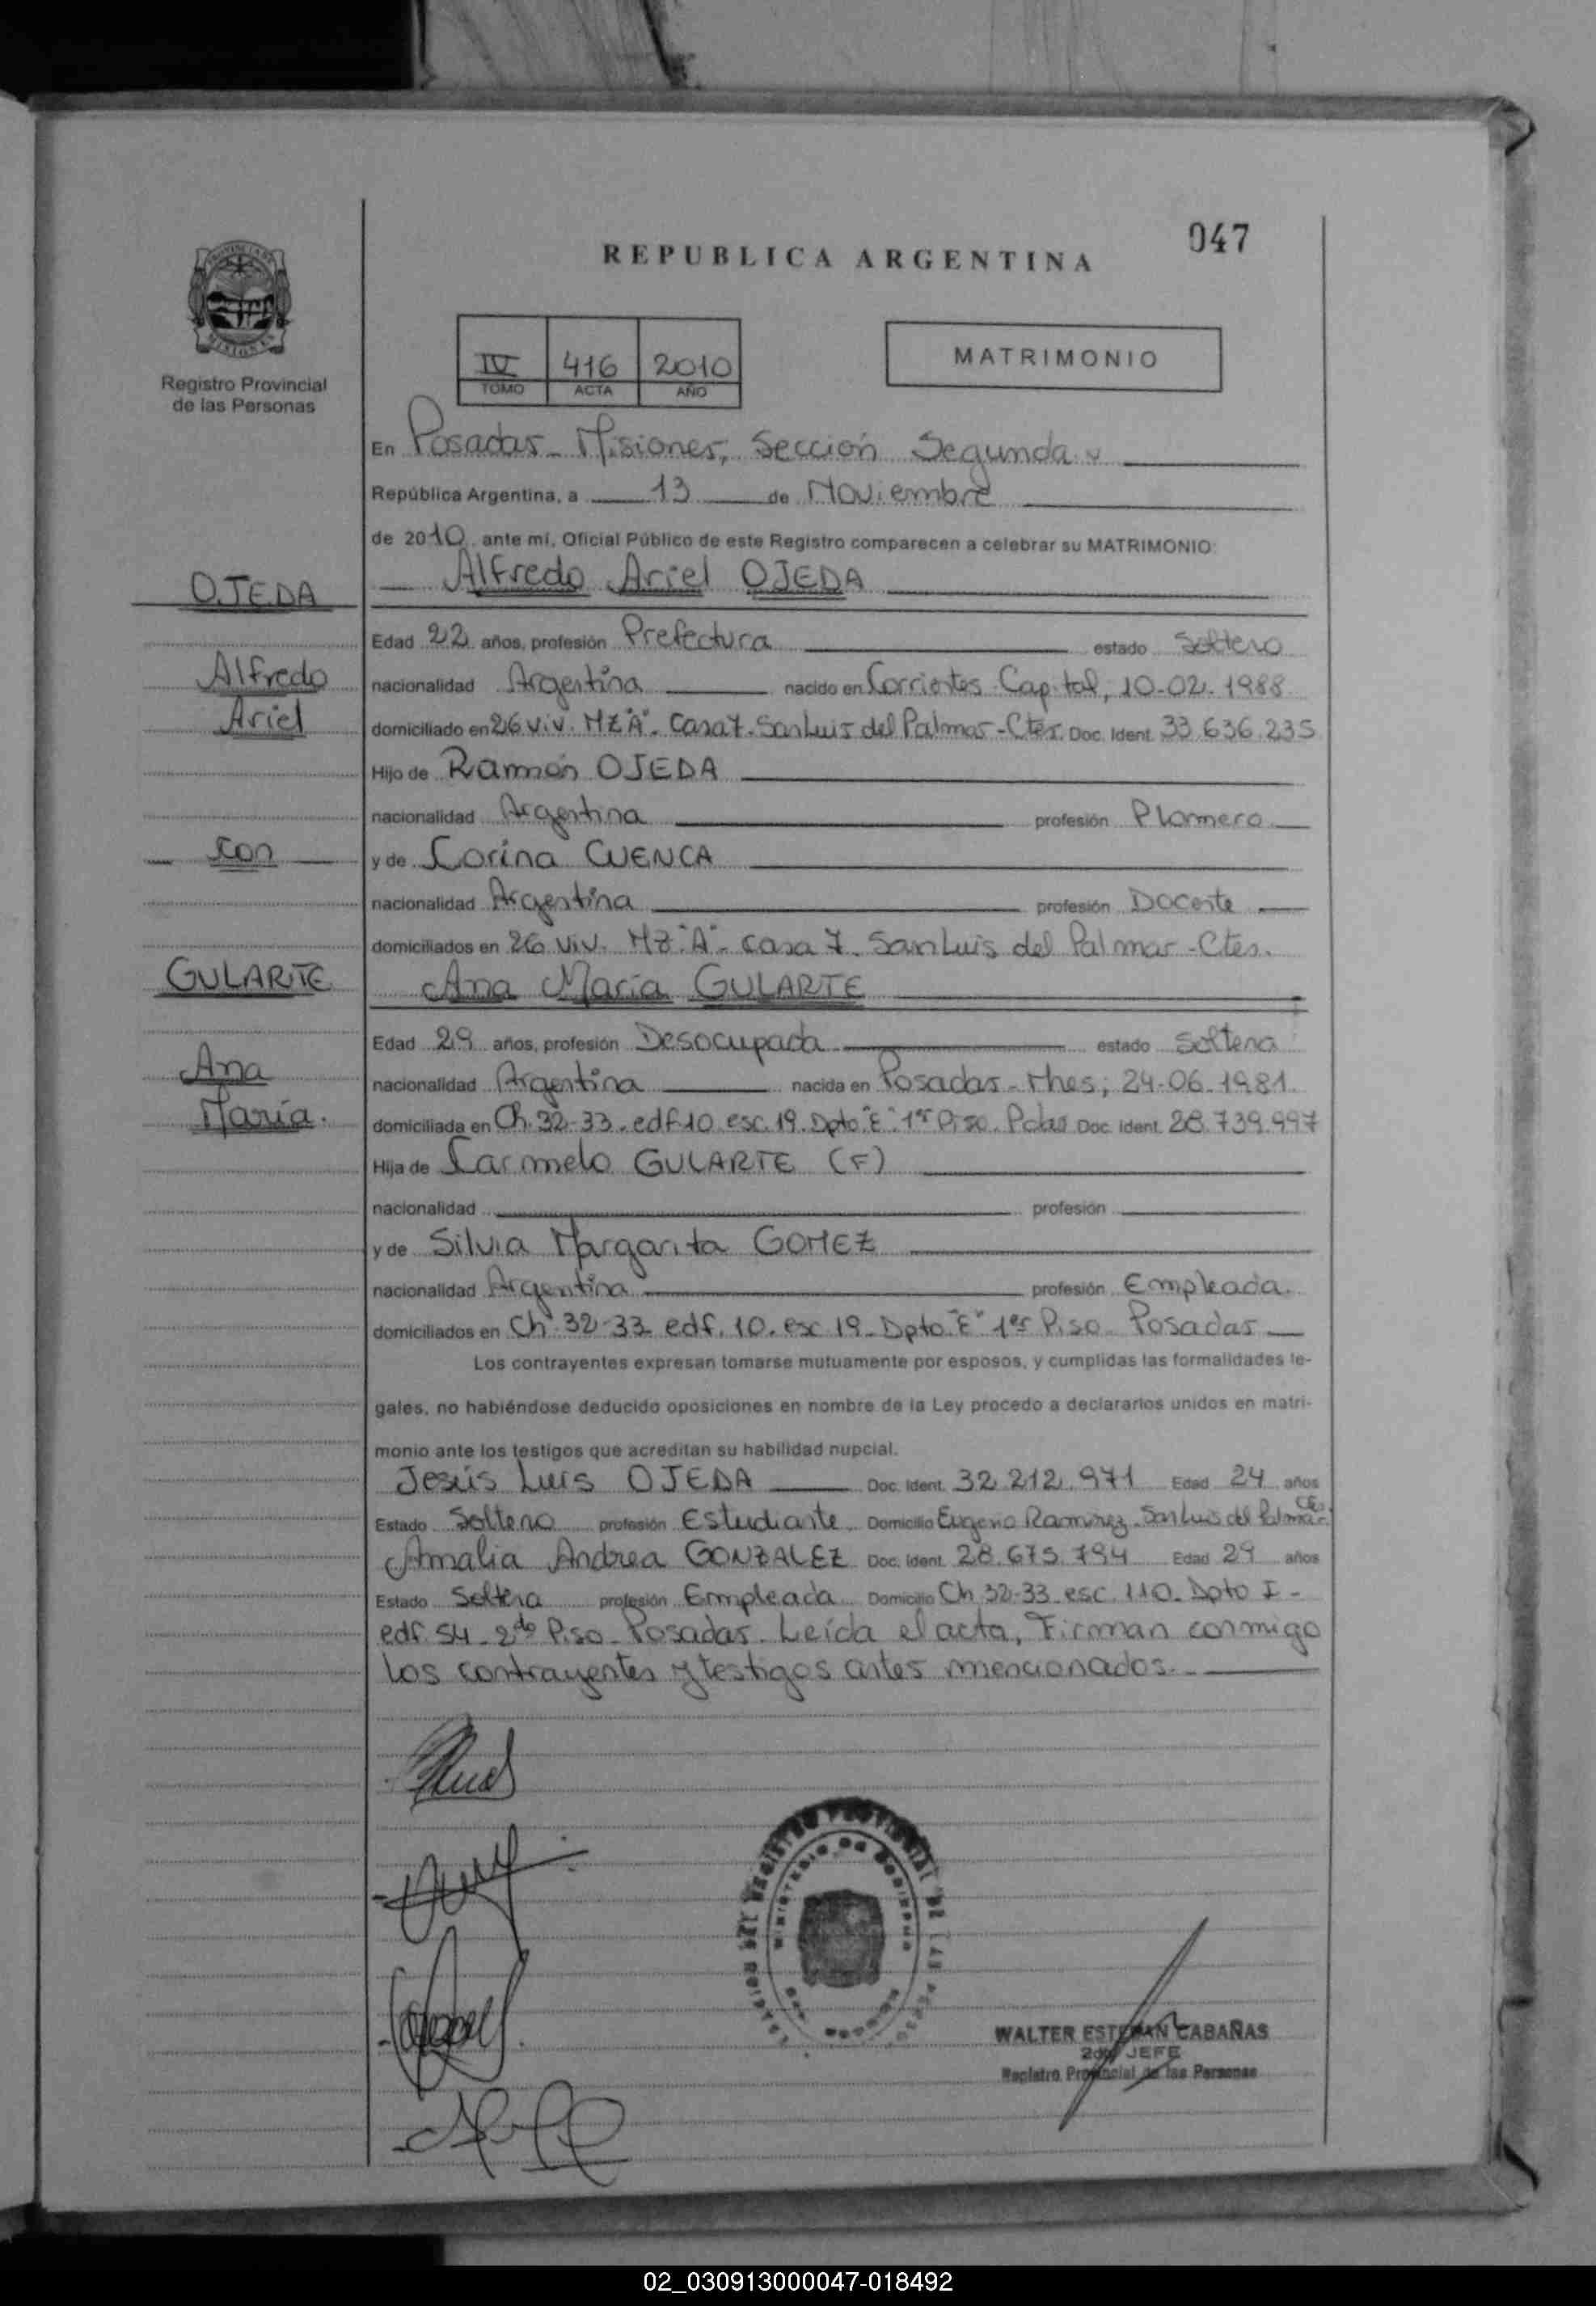 047
REPUBLICA ARGENTINA
Registro Provincial
de las Personas
IV 416 2010
TOMO ACTA AÑO
MATRIMONIO
En Posadas - Misiones, Sección Segunda
República Argentina, a 13 de Noviembre
de 2010 ante mí, Oficial Público de este Registro comparecen a celebrar su MATRIMONIO:
Alfredo Ariel OJEDA
OJEDA
Edad 22 años, profesión Prefectura estado Soltero
Alfredo
nacionalidad Argentina nacido en Corrientes Capital, 10-02-1988
Ariel
domiciliado en 26 Viv. MZ"A". Casa 7. San Luis del Palmar - Ctes. Doc. Ident. 33.636.235
Hijo de Ramón OJEDA
nacionalidad Argentina profesión Plomero
con
y de Corina CUENCA
nacionalidad Argentina profesión Docente
domiciliados en 26 Viv. MZ"A". casa 7. San Luis del Palmar - Ctes.
GULARTE
Ana María GULARTE
Edad 29 años, profesión Desocupada estado Soltera
Ana
nacionalidad Argentina nacida en Posadas - Mnes; 24-06-1981.
María.
domiciliada en Ch. 32-33. edf 10 esc. 19. Dpto "E" 1er Piso. Pdas Doc. Ident. 28.739.997
Hija de Carmelo GULARTE (F)
nacionalidad profesión
y de Silvia Margarita GOMEZ
nacionalidad Argentina profesión Empleada.
domiciliados en Ch. 32-33 edf. 10. esc 19. Dpto "E" 1er Piso. Posadas
Los contrayentes expresan tomarse mutuamente por esposos, y cumplidas las formalidades le-
gales, no habiéndose deducido oposiciones en nombre de la Ley procedo a declararlos unidos en matri-
monio ante los testigos que acreditan su habilidad nupcial.
Jesús Luis OJEDA Doc. Ident. 32.212.971 Edad 24 años
Estado Soltero profesión Estudiante Domicilio Eugenio Ramirez. San Luis del Palmar-
Amalia Andrea GONZALEZ Doc. Ident. 28.675.794 Edad 29 años
Estado Soltera profesión Empleada Domicilio Ch 32-33 esc. 110. Dpto I -
edf. 54. 2do Piso - Posadas. Leída el acta, Firman conmigo
los contrayentes y testigos antes mencionados.
WALTER ESTEBAN CABAÑAS
2do JEFE
Registro Provincial de las Personas
02_030913000047-018492